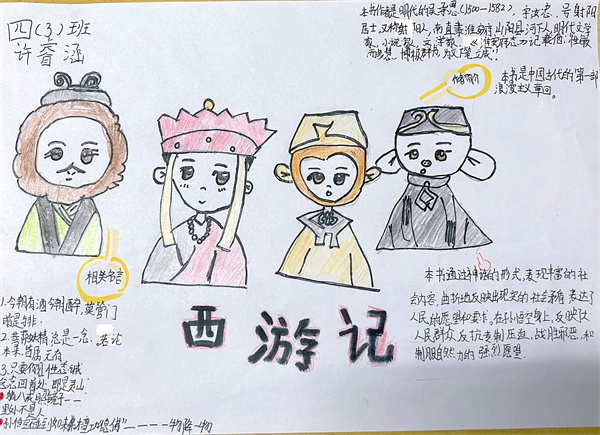 四(3)班
许睿涵
本书作者是明代的吴承恩(1500-1582),字汝忠,号射阳
居士,又称射阳人,南直隶淮安府山阳县河下人,明代文学
家、小说家
储备
本书是中国古代的第一部
浪漫主义章回。
相关名言
1.今朝有酒今朝醉,莫管门
前是与非.
2.菩萨妖精总是一念.若论
本来,皆属无有
3.只要你见性志诚
念念回首处,即是灵山
猪八戒照镜子——
里外不是人
一物降一物
西游记
本书通过神话的形式,表现丰富的社
会内容,曲折地反映出现实的社会矛盾,表达了
人民的愿望和要求。在孙悟空身上,反映了
人民群众反抗专制压迫,战胜邪恶,和
制服自然力的强烈愿望.